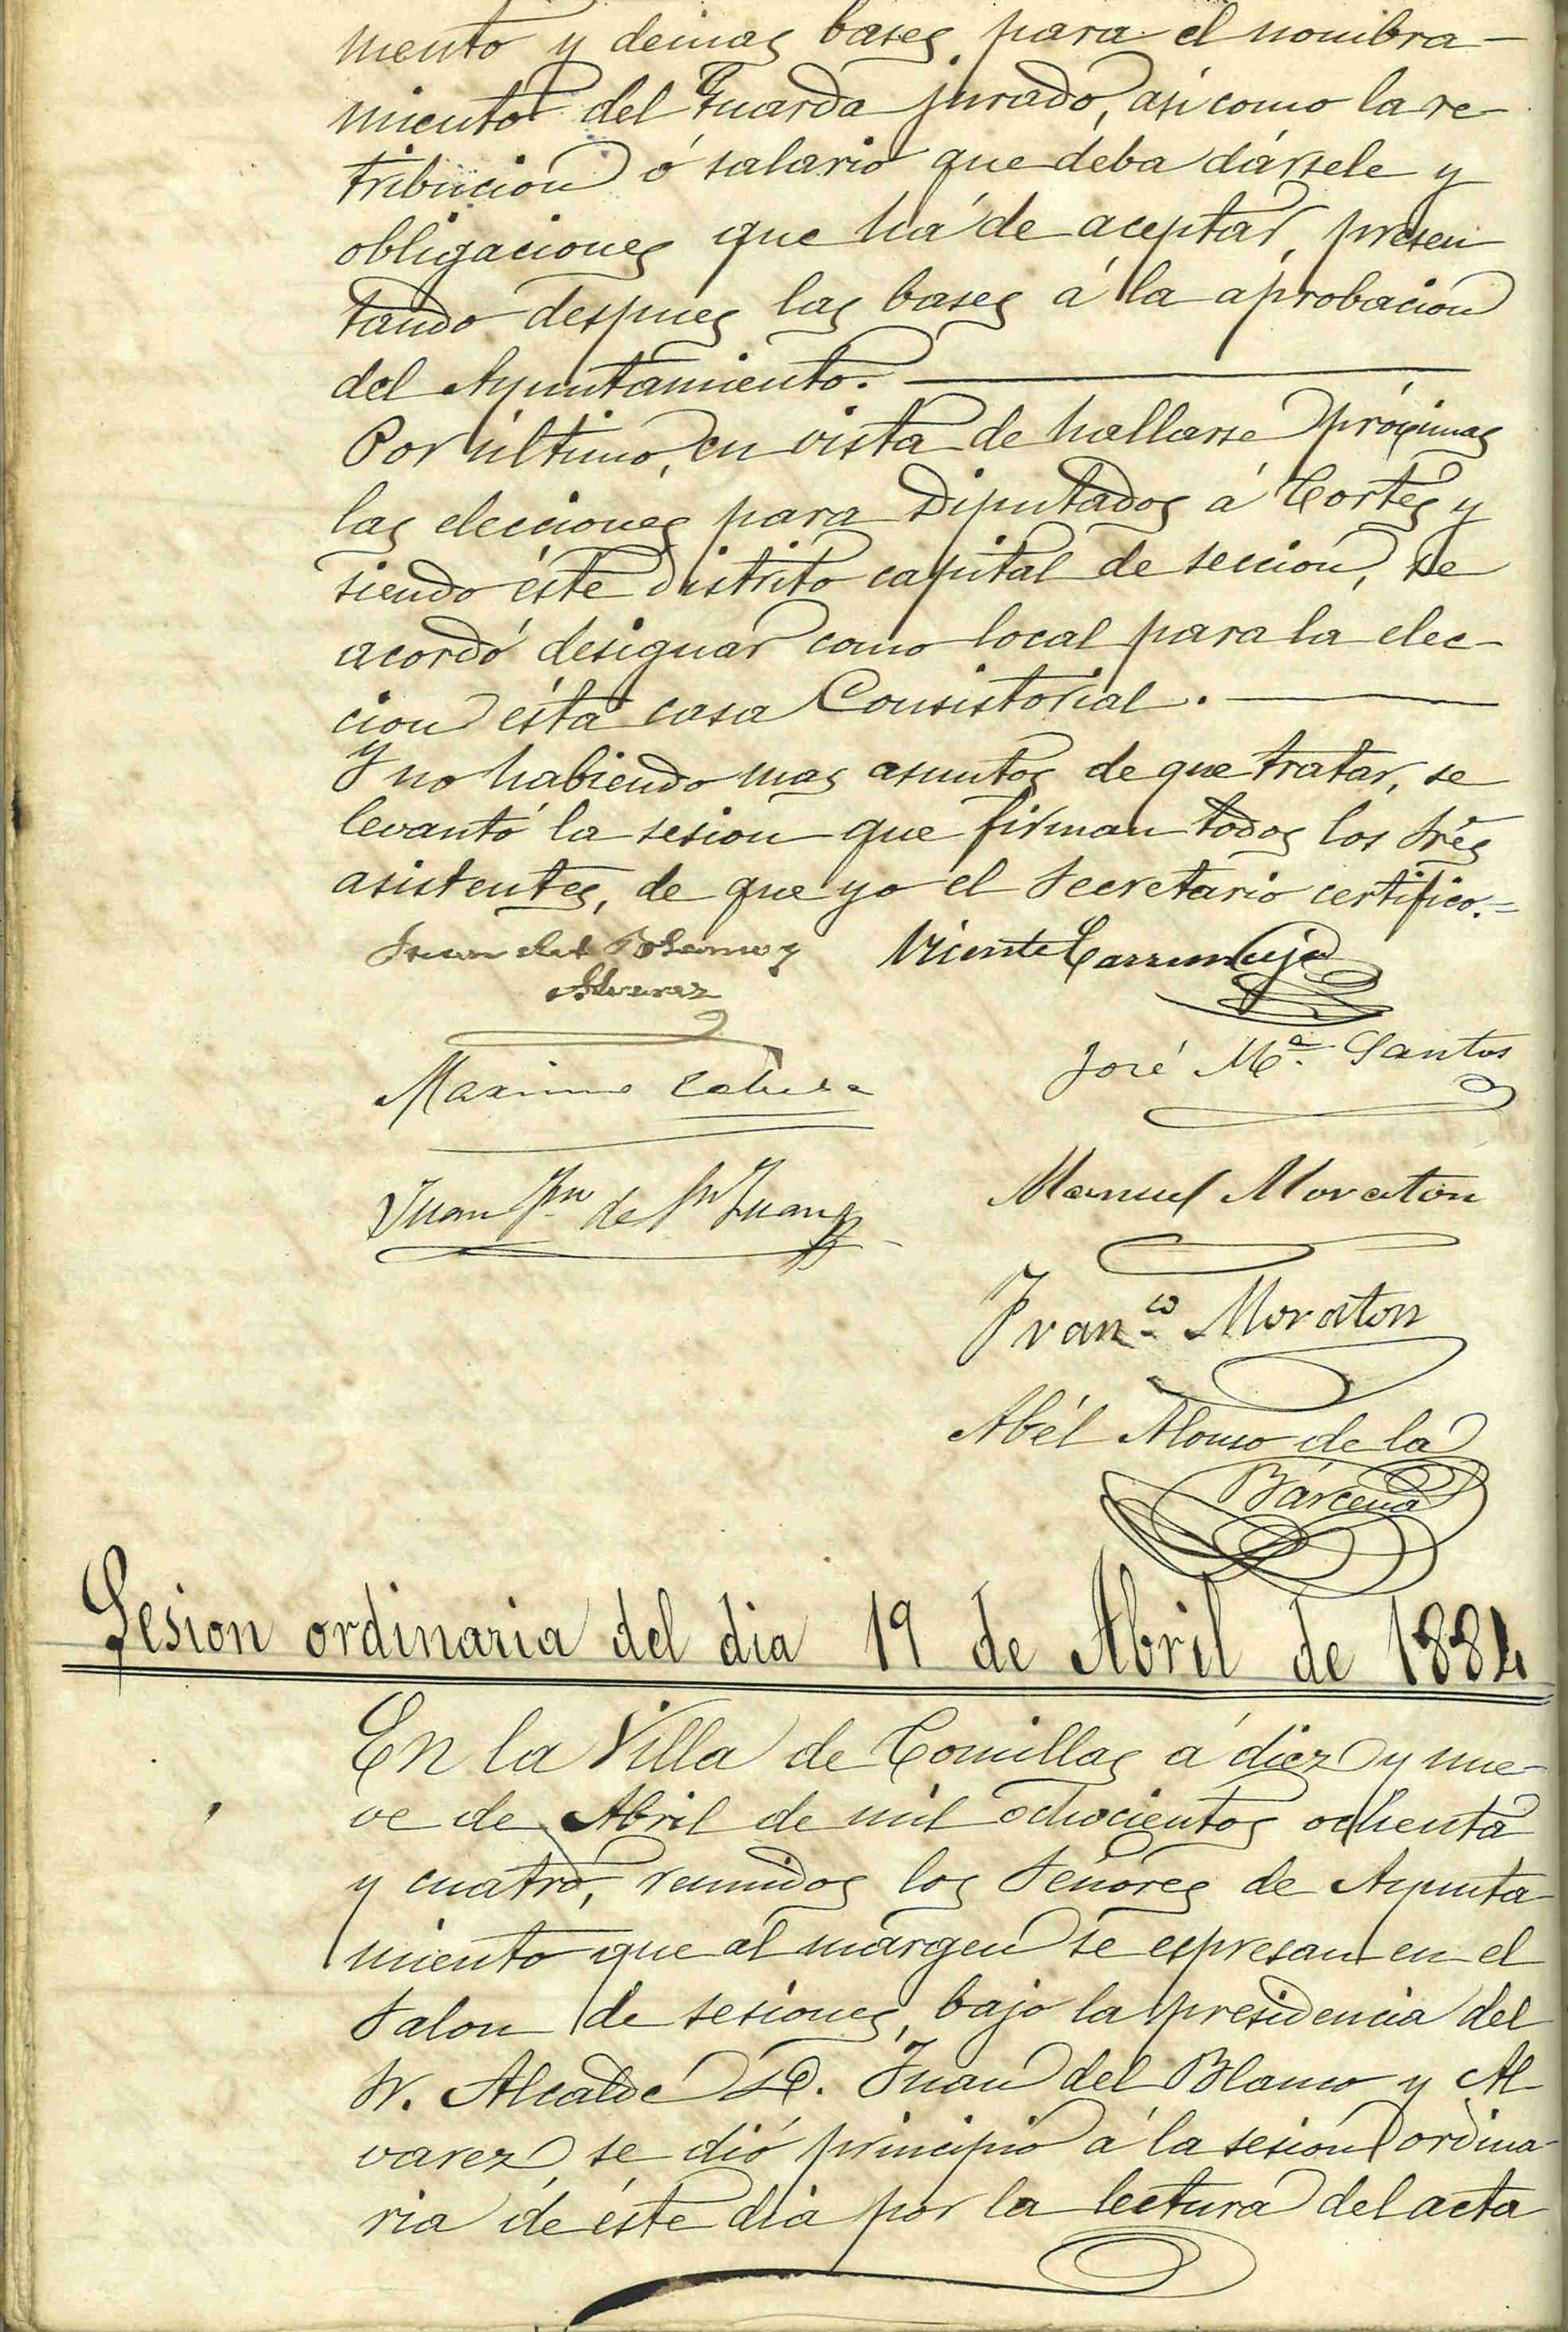 mento y demas bases para el nombra-
miento del Guarda jurado, asi como la re-
tribucion ó salario que deba dársele y
obligaciones que há de aceptar, presen
tando despues las bases á la aprobacion
del Ayuntamiento.
Por último, en vista de hallarse próximas
las elecciones para Diputados á Cortes y
siendo éste distrito capital de seccion, se
acordó designar como local para la elec-
cion ésta casa Consistorial.
Y no habiendo mas asuntos de que tratar, se
levantó la sesion que firman todos los Sres
asistentes, de que yo el Secretario certifico.=
Juan del Blanco y Vicente Carranceja
Alvarez
José Mª. Santos
Maximo
Manuel Moraton
Juan Fn de Sn Juan
Franco Moraton
Abél Alonso de la
Bárcena
Sesion ordinaria del dia 19 de Abril de 1884
En la Villa de Comillas á diez y nue-
ve de Abril de mil ochocientos ochenta
y cuatro, reunidos los Señores de Ayunta-
miento que al márgen se espresan en el
Salon de sesiones, bajo la presidencia del
Sr. Alcalde D. Juan del Blanco y Al-
varez, se dió principio á la sesion ordina-
ria de éste dia por la lectura del acta